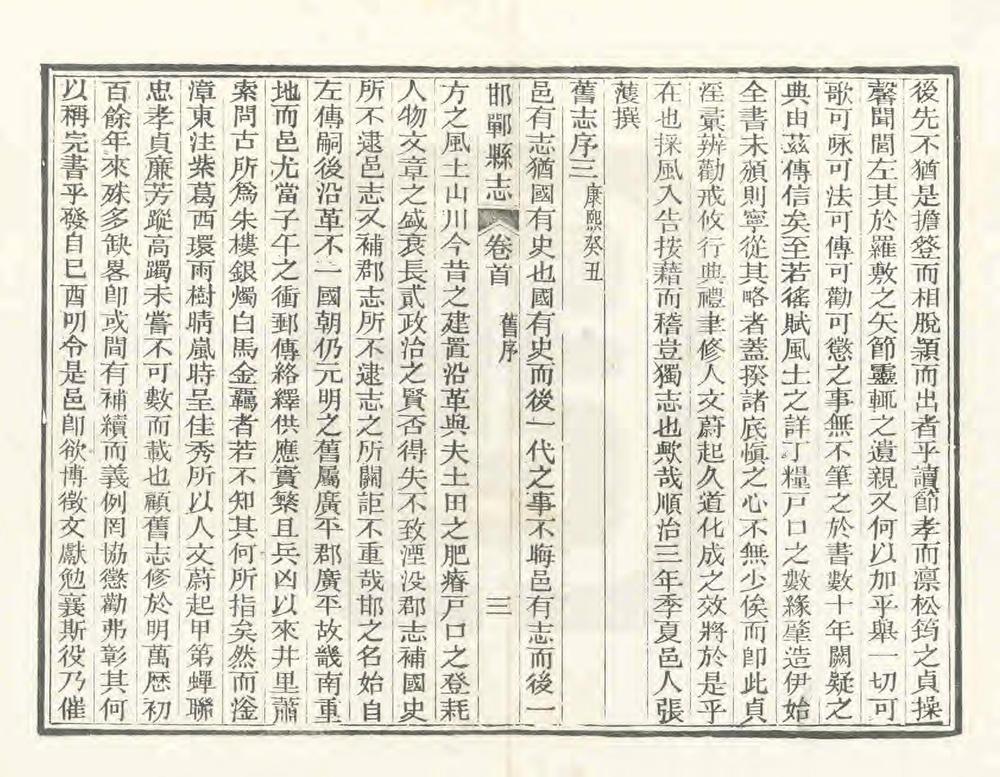 後先不猶是擔登而相脫穎而出者乎讀節孝而凛松筠之貞操
馨聞閭左其於羅敷之矢節靈輒之遺親又何以加乎舉一切可
歌可咏可法可傳可勸可懲之事無不筆之於書數十年闕疑之
典由茲傳信矣至若徭賦風土之詳丁糧戸口之數緣肇造伊始
全書未頒則寧從其略者蓋揆諸底愼之心不無少俟而卽此貞
淫彚辨勸戒攸行典禮聿修人文蔚起久道化成之效將於是乎
在也採風入告按藉而稽豈獨志也歟哉順治三年季夏邑人張
蠖撰
舊志序三康熙癸丑
邑有志猶國有史也國有史而後一代之事不晦邑有志而後一
邯鄲縣志 卷首 舊序 三
方之風土山川今昔之建置沿革與夫土田之肥瘠戸口之登耗
人物文章之盛衰長貳政治之賢否得失不致湮没郡志補國史
所不逮邑志又補郡志所不逮志之所關詎不重哉邯之名始自
左傳嗣後沿革不一國朝仍元明之舊屬廣平郡廣平故畿南重
地而邑尤當子午之衝郵傳絡繹供應實繁且兵凶以來井里蕭
索問古所爲朱樓銀燭白馬金羈者若不知其何所指矣然而滏
漳東注紫葛西環雨樹晴嵐時呈佳秀所以人文蔚起甲第蟬聯
忠孝貞廉芳蹤高躅未嘗不可數而載也顧舊志修於明萬歷初
百餘年來殊多缺畧卽或間有補續而義例罔協懲勸弗彰其何
以稱完書乎發自巳酉叨令是邑卽欲博徵文獻勉襄斯役乃催